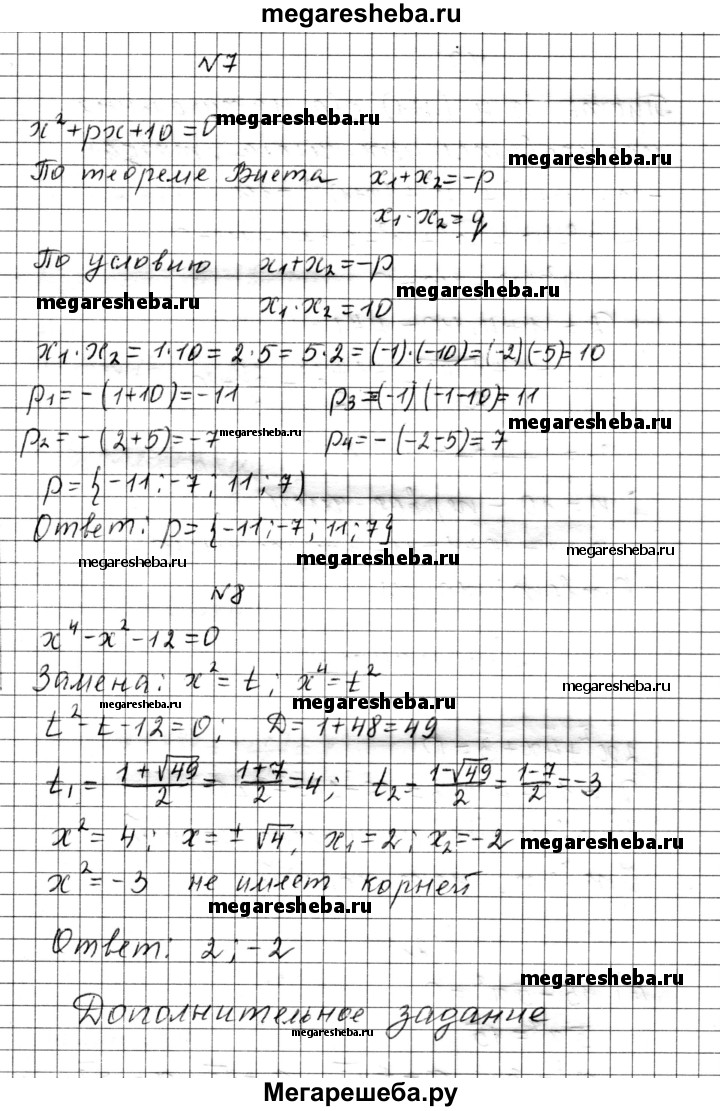 megaresheba.ru
№7
x²+px+10=0 megaresheba.ru
megaresheba.ru
По теореме Виета x₁+x₂=-p
x₁·x₂=q
По условию x₁+x₂=-p
megaresheba.ru x₁·x₂=10 megaresheba.ru
x₁·x₂=1·10=2·5=5·2=(-1)·(-10)=(-2)(-5)=10
p₁=-(1+10)=-11 p₃=(-1)(-1-10)=11
megaresheba.ru
p₂=-(2+5)=-7 megaresheba.ru p₄=-(-2-5)=7
p={-11;-7;11;7)
Ответ: p={-11;-7;11;7}
megaresheba.ru megaresheba.ru megaresheba.ru
№8
x⁴-x²-12=0
Замена: x²=t; x⁴=t² megaresheba.ru
megaresheba.ru megaresheba.ru
t²-t-12=0; D=1+48=49
t₁=(1+√49)/2=(1+7)/2=4; t₂=(1-√49)/2=(1-7)/2=-3
x²=4; x=±√4; x₁=2; x₂=-2 megaresheba.ru
x²=-3 не имеет корней
megaresheba.ru
Ответ: 2;-2
megaresheba.ru
Дополнительное задание
megaresheba.ru
Мегарешеба.ру